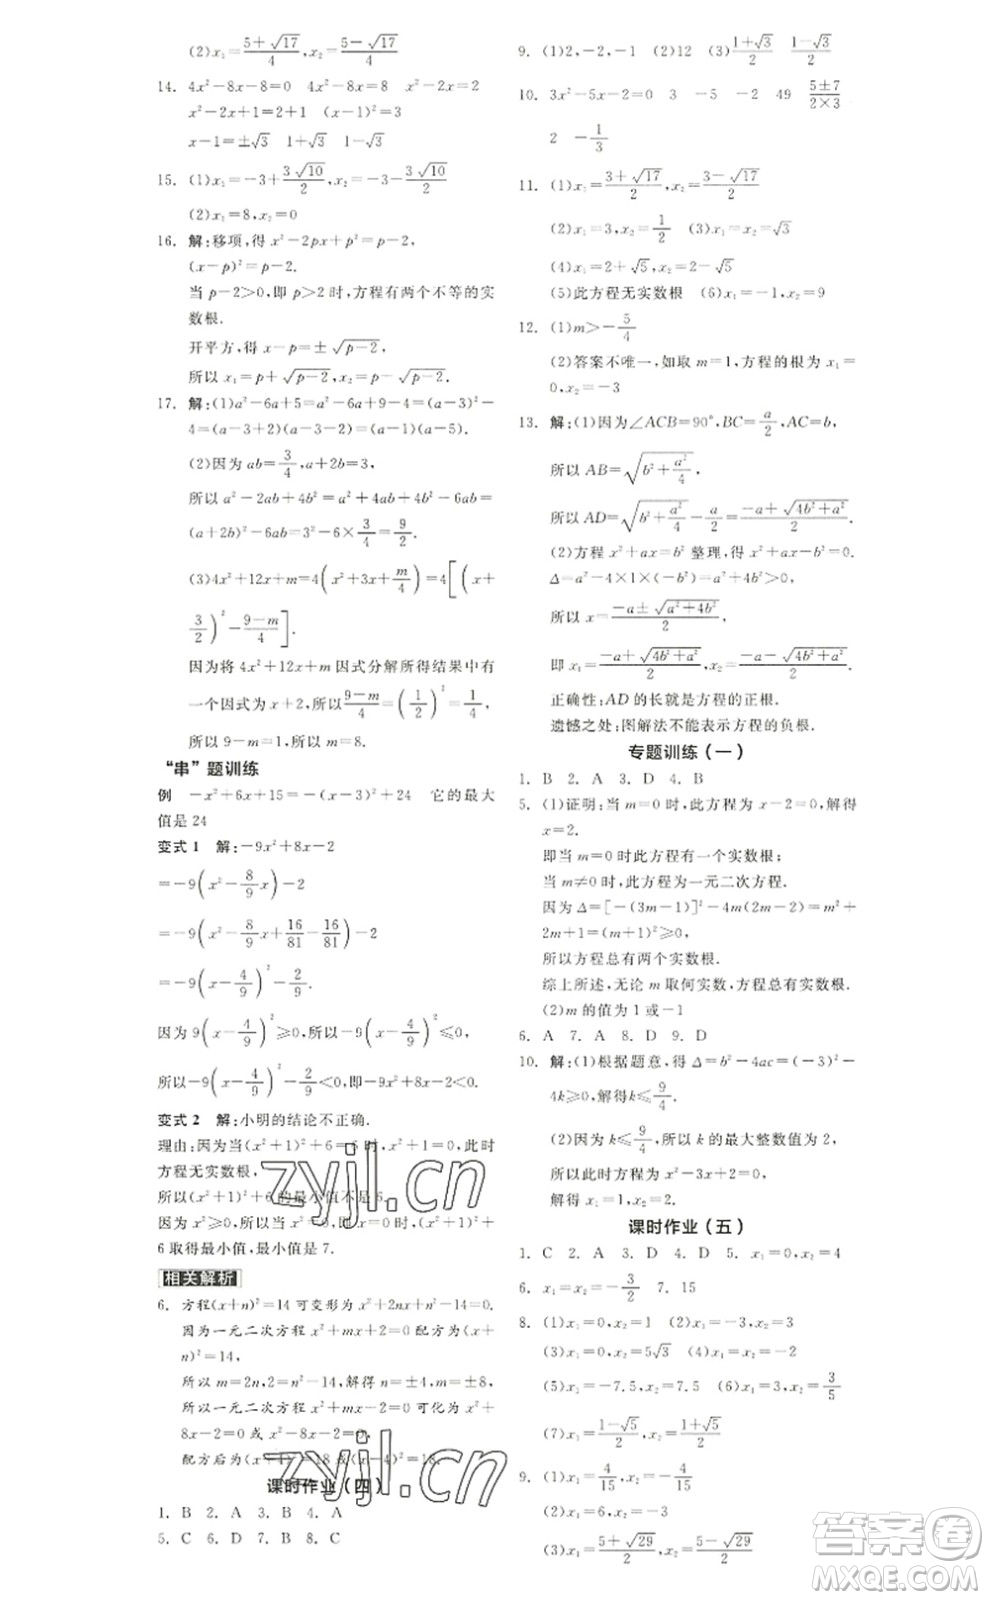 (2)x₁=(5+√17)/4,x₂=(5-√17)/4
14. 4x²-8x-8=0　4x²-8x　x²-2x=2
x²-2x+1=2+1　(x-1)²=3
x-1=±√3　1+√3　1-√3
15. (1)x₁=-3+(3√10)/2,x₂=-3-(3√10)/2
(2)x₁=8,x₂=0
16. 解:移项,得 x²-2px+p²=p-2,
(x-p)²=p-2.
当 p-2>0,即 p>2 时,方程有两个不等的实
数根.
开平方,得 x-p=±√(p-2),
所以 x₁=p+√(p-2),x₂=p-√(p-2).
17. 解:(1)a²-6a+5=a²-6a+9-4=(a-3)²-
4=(a-3+2)(a-3-2)=(a-1)(a-5).
(2)因为 ab=3/4,a+2b=3,
所以 a²-2ab+4b²=a²+4ab+4b²-6ab=
(a+2b)²-6ab=3²-6×3/4=9/2.
(3)4x²+12x+m=4(x²+3x+m/4)=4[(x+
3/2)²-(9-m)/4].
因为将 4x²+12x+m 因式分解所得结果中有
一个因式为 x+2,所以(9-m)/4=(1/2)²=1/4,
所以 9-m=1,所以 m=8.
“串”题训练
例　-x²+6x+15=-(x-3)²+24　它的最大
值是 24
变式 1　解:-9x²+8x-2
=-9(x²-8/9x)-2
=-9(x²-8/9x+16/81-16/81)-2
=-9(x-4/9)²-2/9.
因为 9(x-4/9)²≥0,所以-9(x-4/9)²≤0,
所以-9(x-4/9)²-2/9<0,即-9x²+8x-2<0.
变式 2　解:小明的结论不正确.
理由:因为当(x²+1)²+6=6 时,x²+1=0,此时
方程无实数根,
所以(x²+1)²+6 的最小值不是 6.
因为 x²≥0,所以当 x²=0,即 x=0 时,(x²+1)²+
6 取得最小值,最小值是 7.
相关解析
6. 方程(x+n)²=14 可变形为 x²+2nx+n²-14=0.
因为一元二次方程 x²+mx+2=0 配方为(x+
n)²=14,
所以 m=2n,2=n²-14,所以 n=±4,m=±8,
所以一元二次方程 x²+mx-2=0 可化为 x²+
8x-2=0 或 x²-8x-2=0.
配方后为(x+4)²=18 或(x-4)²=18.
课时作业(四)
1. B　2. A　3. B　4. A
5. C　6. D　7. B　8. C
9. (1)2,-2,-1　(2)12　(3)(1+√3)/2　(1-√3)/2
10. 3x²-5x-2=0　3　-5　-2　49　(5±7)/(2×3)
2　-1/3
11. (1)x₁=(3+√17)/2,x₂=(3-√17)/2
(2)x₁=3,x₂=1/2　(3)x₁=x₂=√3
(4)x₁=2+√5,x₂=2-√5
(5)此方程无实数根　(6)x₁=-1,x₂=9
12. (1)m>-5/4
(2)答案不唯一,如取 m=1,方程的根为 x₁=
0,x₂=-3
13. 解:(1)因为∠ACB=90°,BC=a/2,AC=b,
所以 AB=√(b²+a²/4),
所以 AD=√(b²+a²/4)-a/2=(-a+√(4b²+a²))/2.
(2)方程 x²+ax=b² 整理,得 x²+ax-b²=0.
Δ=a²-4×1×(-b²)=a²+4b²>0,
所以 x=(-a±√(a²+4b²))/2,
即 x₁=(-a+√(4b²+a²))/2,x₂=(-a-√(4b²+a²))/2.
正确性:AD 的长就是方程的正根.
遗憾之处:图解法不能表示方程的负根.
专题训练(一)
1. B　2. A　3. D　4. B
5. (1)证明:当 m=0 时,此方程为 x-2=0,解得
x=2.
即当 m=0 时此方程有一个实数根;
当 m≠0 时,此方程为一元二次方程.
因为 Δ=[-(3m-1)]²-4m(2m-2)=m²+
2m+1=(m+1)²≥0,
所以方程总有两个实数根.
综上所述,无论 m 取何实数,方程总有实数根.
(2)m 的值为 1 或-1
6. A　7. A　8. D　9. D
10. 解:(1)根据题意,得 Δ=b²-4ac=(-3)²-
4k≥0,解得 k≤9/4.
(2)因为 k≤9/4,所以 k 的最大整数值为 2,
所以此时方程为 x²-3x+2=0,
解得 x₁=1,x₂=2.
课时作业(五)
1. C　2. D　3. D　4. D　5. x₁=0,x₂=4
6. x₁=x₂=-3/2　7. 15
8. (1)x₁=0,x₂=1　(2)x₁=-3,x₂=3
(3)x₁=0,x₂=5√3　(4)x₁=x₂=-2
(5)x₁=-7.5,x₂=7.5　(6)x₁=3,x₂=3/5
(7)x₁=(1-√5)/2,x₂=(1+√5)/2
9. (1)x₁=4/15,x₂=-4/15
(2)x₁=6,x₂=-3
(3)x₁=(5+√29)/2,x₂=(5-√29)/2
zyjl.cn
zyjl.cn
答案圈
MXQE.COM